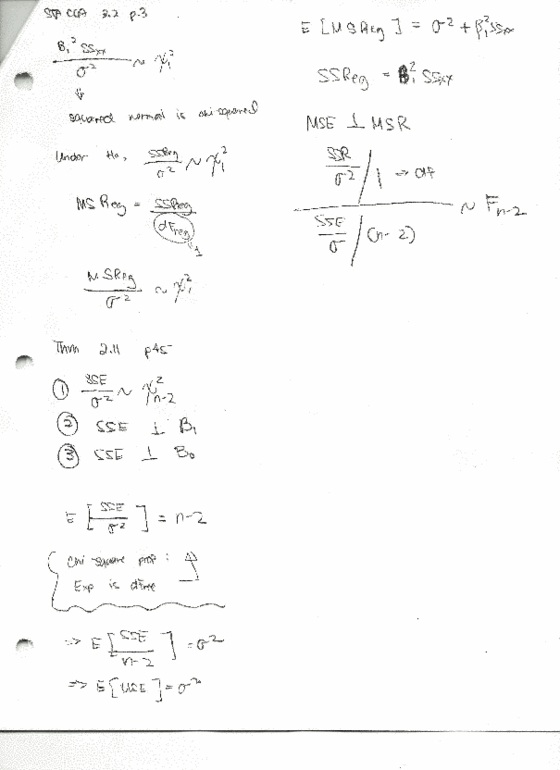 STA CCA 2.2 p.3
B₁² SSxx / σ² ~ χ₁²
⇓
squared normal is chi squared
Under H₀, SSReg / σ² ~ χ₁²
MS Reg = SSReg / dfreg
1
MSReg / σ² ~ χ₁²
Thm 2.11 p45
① SSE / σ² ~ χ²n-2
② SSE ⊥ B₁
③ SSE ⊥ B₀
E [ SSE / σ² ] = n-2
Chi square prop :
Exp is dfree
=> E [ SSE / n-2 ] = σ²
=> E [MSE] = σ²
E [MSReg] = σ² + β₁² SSxx
SSReg = B₁² SSxx
MSE ⊥ MSR
SSR / σ² / 1 → df
~ Fn-2
SSE / σ / (n-2)